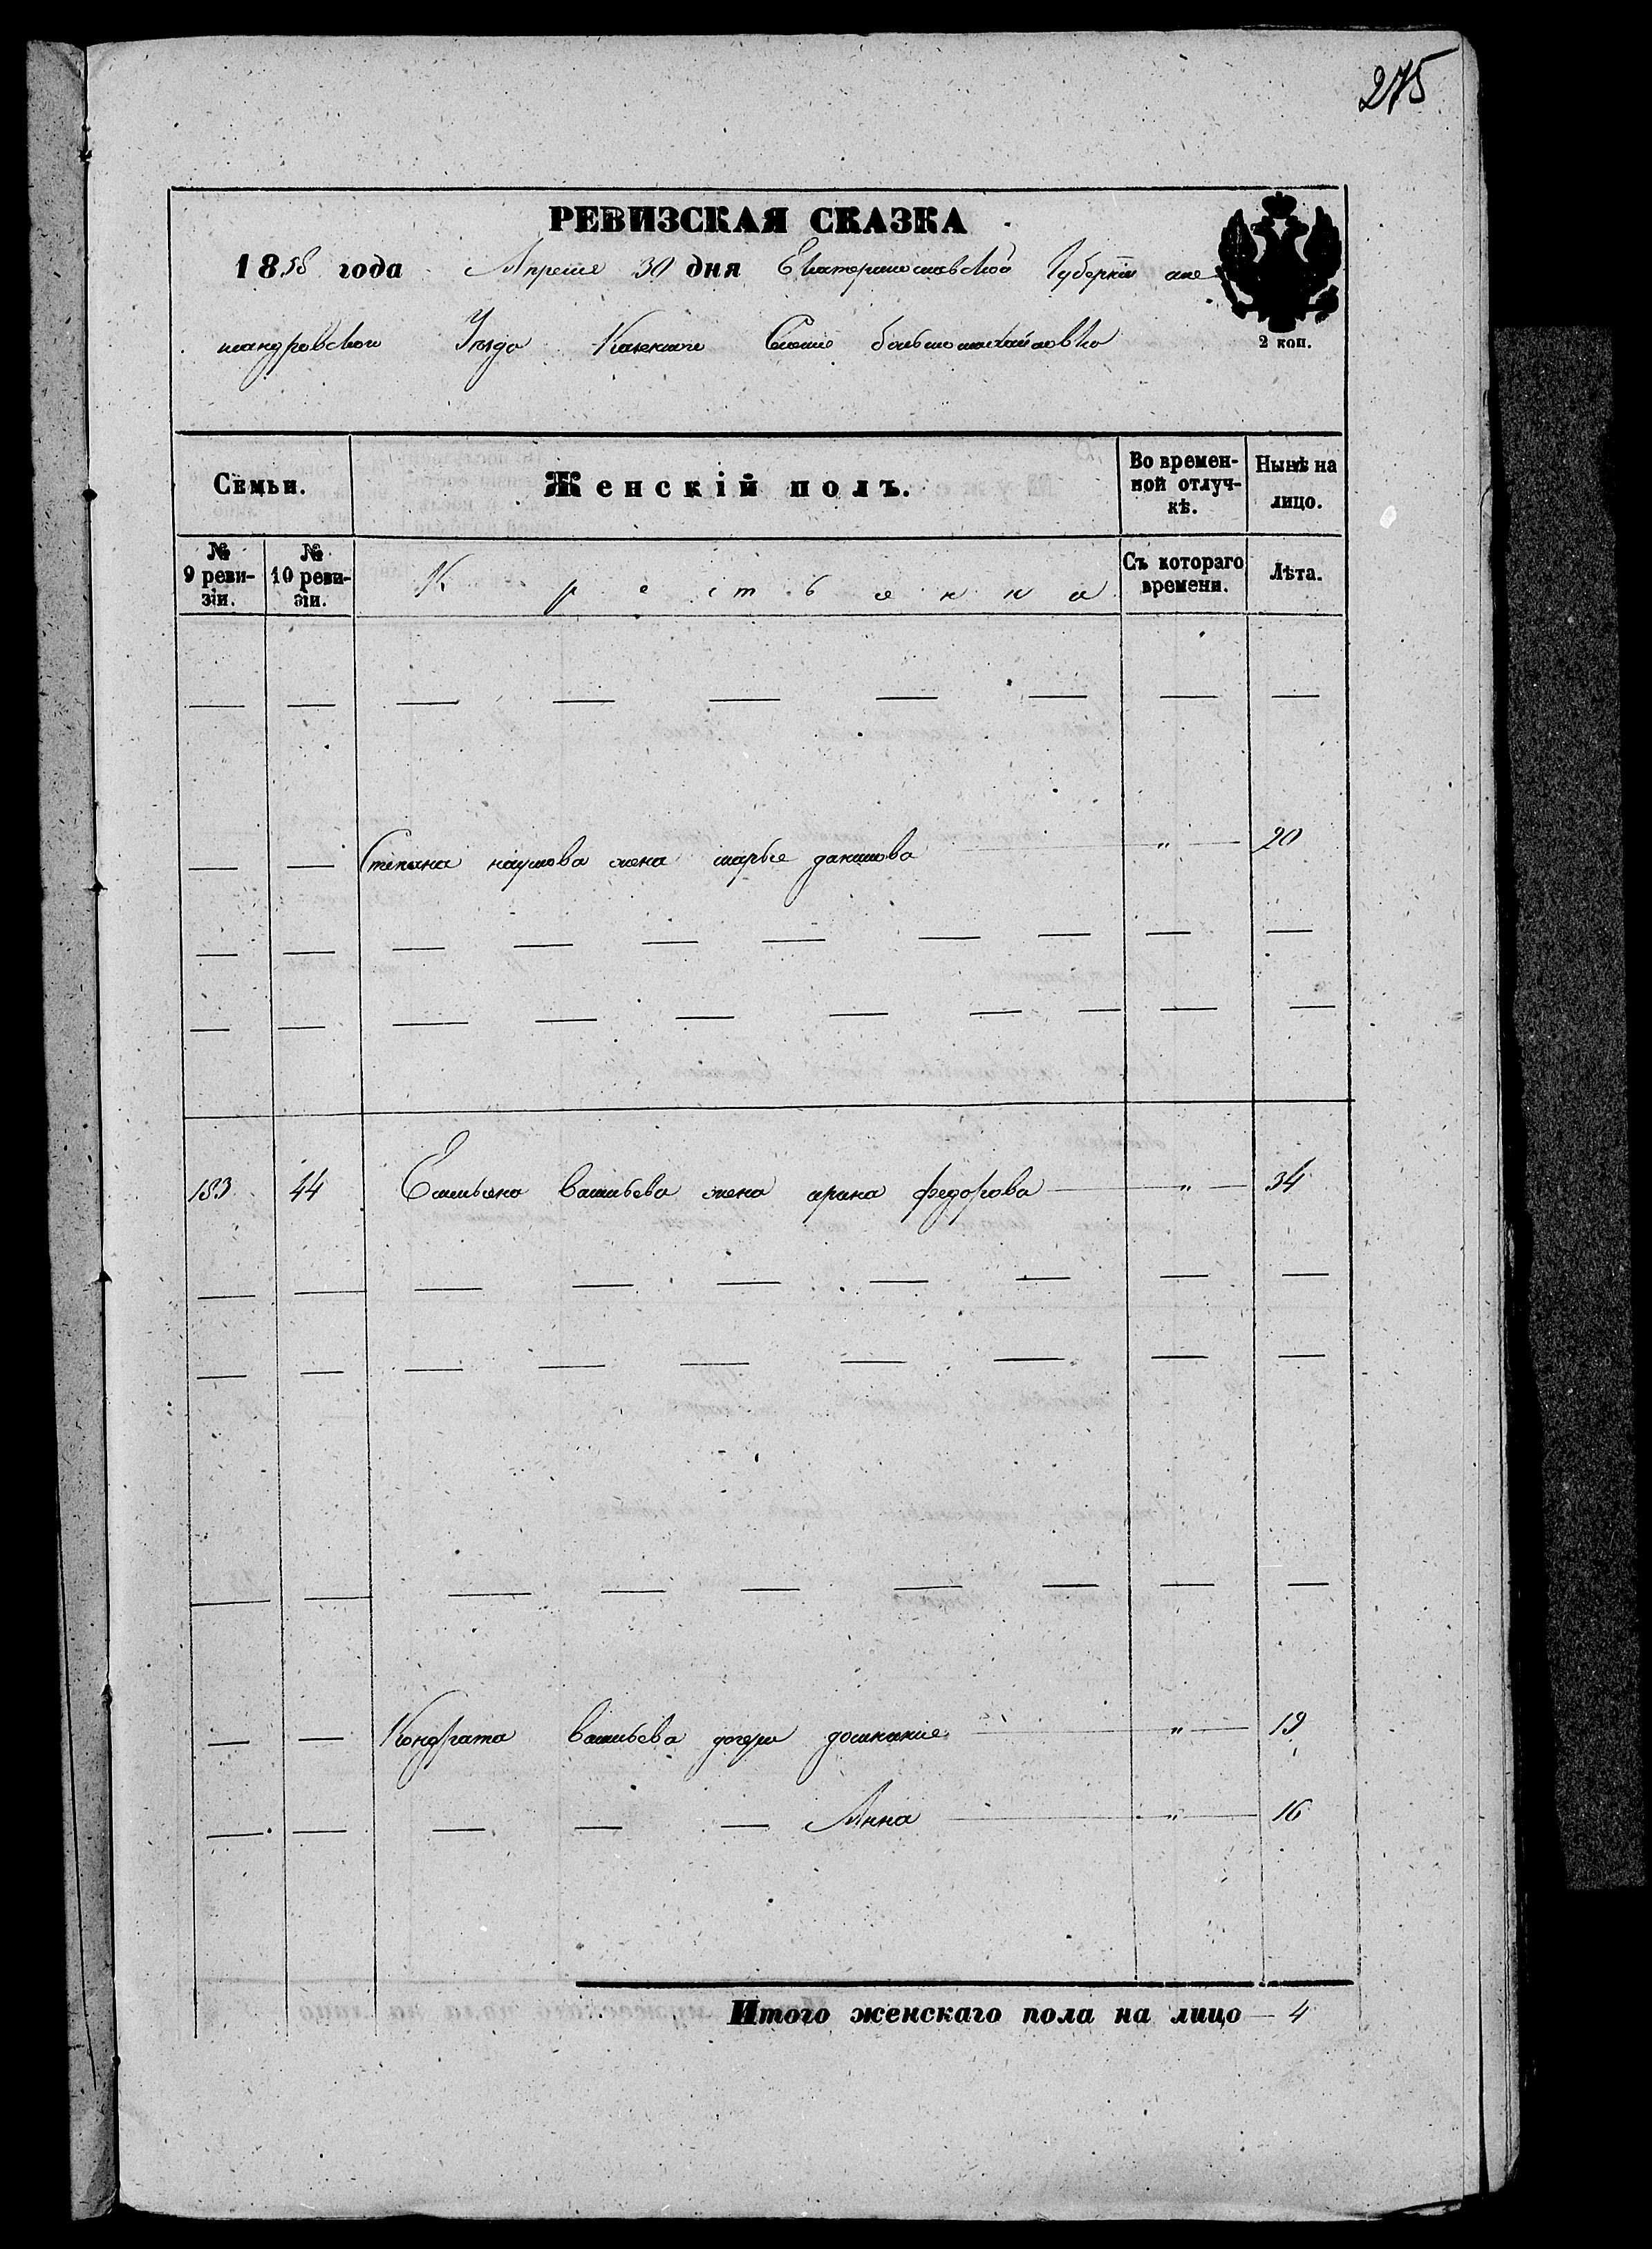 275
РЕВИЗСКАЯ СКАЗКА
1858 года Апреля 30 дня Екатеринославской Губернии але
ксандровского Уезда Казенного Селение большомихайловка
2 коп.
Семьи. Женскій полъ. Во времен-ной отлуч-кѣ. Нынѣ на лицо.
№ 9 реви-зіи. № 10 реви-зіи. К р е с т ь я н к а Съ котораго времени. Лѣта.
— — — — — — — — —
— — Степана наумова жена марья данилова — " — 20
— — — — — — — — — —
— — — — — — — — — —
183 44 Емельяна васильева жена арина федорова — " — 34
— — — — — — — — —
— — — — — — — — —
— — — — — — — — —
— — Кондрата васильева дочери домникие — " — 19
— — — — — Анна — " — 16
Итого женскаго пола на лицо — 4